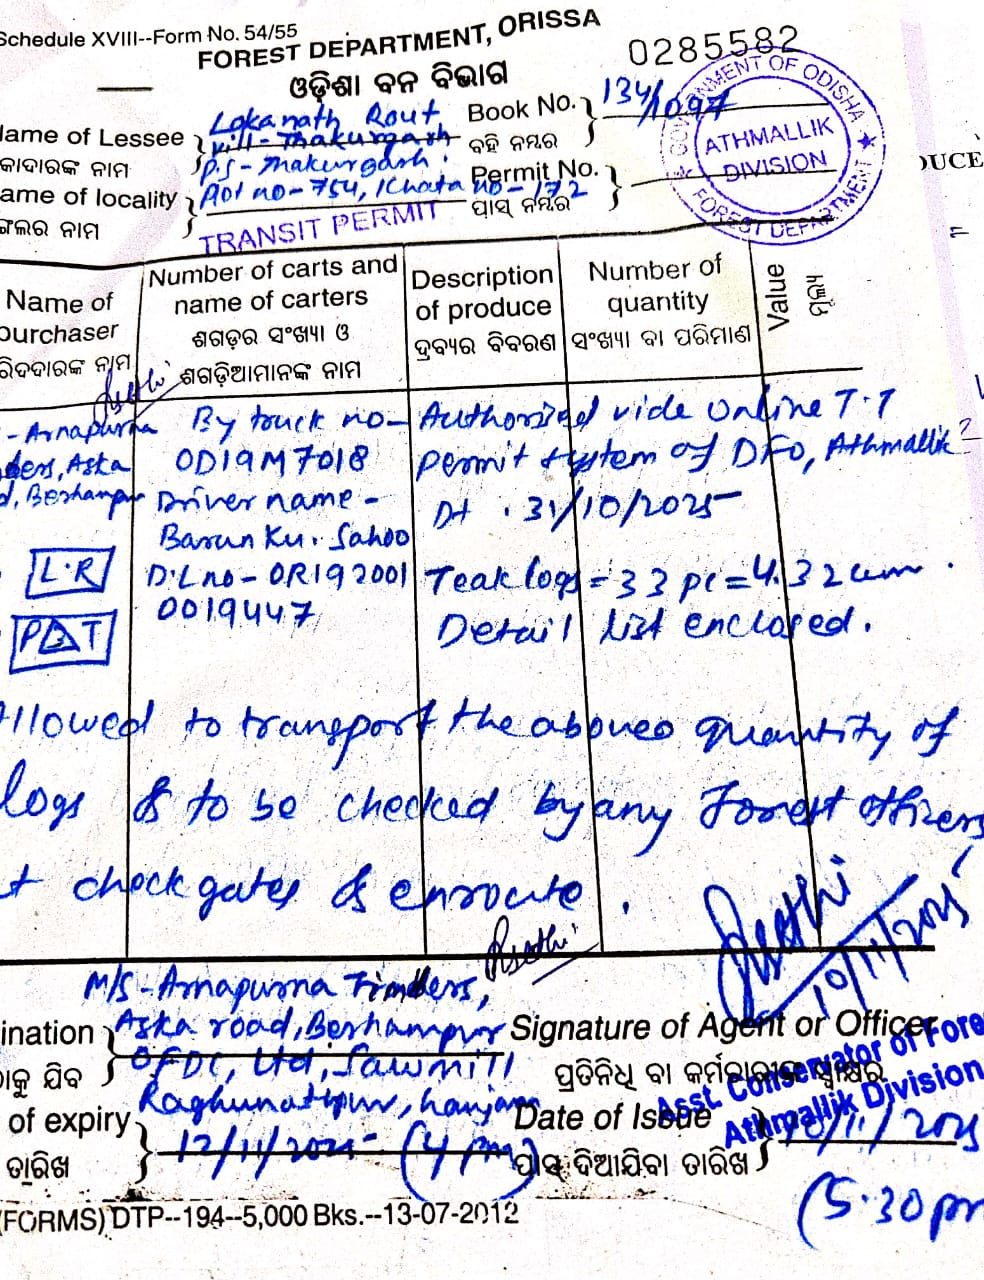 Schedule XVIII--Form No. 54/55
FOREST DEPARTMENT, ORISSA
0285582
ଓଡ଼ିଶା ବନ ବିଭାଗ
GOVERNMENT OF ODISHA
ATHMALLIK
DIVISION
FOREST DEPARTMENT
Name of Lessee
Lokanath Rout
vill- Thakurgarh
Book No.
134/
ବହି ନମ୍ବର
P.S - Thakurgarh.
Permit No.
ପାସ୍ ନମ୍ବର
ame of locality
Plot no - 754, Khata no - 172
ଙ୍ଗଲର ନାମ
TRANSIT PERMIT
DUCE
Name of
purchaser
ରିଦଦାରଙ୍କ ନାମ
Number of carts and
name of carters
ଶଗଡ଼ର ସଂଖ୍ୟା ଓ
ଶଗଡ଼ିଆମାନଙ୍କ ନାମ
Description
of produce
ଦ୍ରବ୍ୟର ବିବରଣ
Number of
quantity
ସଂଖ୍ୟା ବା ପରିମାଣ
Value
ମୂଲ୍ୟ
- Arnapurna
ders, Aska
d, Berhampur
L.R
By truck no-
OD19M7018
Driver name -
Barun Ku. Sahoo
D.L no - OR192001
0019447
Authorized vide online T.T
permit system of DFO, Athmallik
Dt . 31/10/2025
Teak logs = 33 pc = 4.32 cum .
Detail list enclosed.
Allowed to transport the aboves quantity of
logs & to be checked by any Forest officers
t check gates & enroute .
10/11/2025
M/S - Arnapurna Timbers,
ination
Aska road, Berhampur
Signature of Agent or Officer
OFDC, Ltd, Sawmill
ାକୁ ଯିବ
ପ୍ରତିନିଧି ବା କର୍ମଚାରୀଙ୍କ ସ୍ୱାକ୍ଷର
Asst. Conservator of Fore
Athmallik Division
Raghunathpur, Ganjam
of expiry
12/11/2025 - (4 pm)
Date of Issue
10/11/2025
ତାରିଖ
ପାସ୍ ଦିଆଯିବା ତାରିଖ
(5.30 pm
(FORMS) DTP--194--5,000 Bks.--13-07-2012